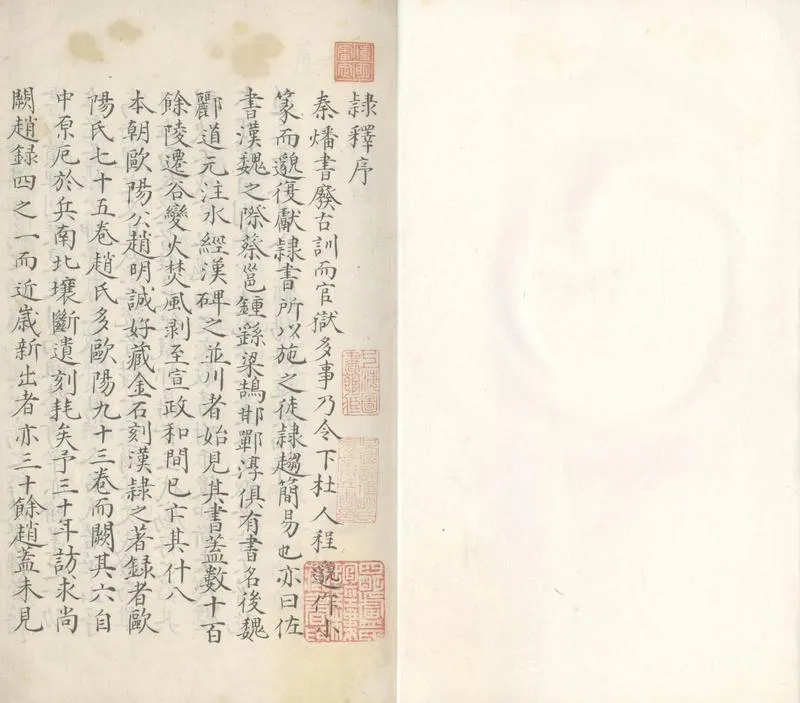 隷釋序
秦燔書廢古訓而官獄多事乃令下杜人程邈作小
篆而邈復獻隷書所以施之徒隷趨簡易也亦曰佐
書漢魏之際蔡邕鍾繇梁鵠邯鄲淳俱有書名後魏
酈道元注水經漢碑之並川者始見其書蓋數十百
餘陵遷谷變火焚風剥至宣政和間已亡其什八
本朝歐陽公趙明誠好藏金石刻漢隷之著録者歐
陽氏七十五卷趙氏多歐陽九十三卷而闕其六自
中原厄於兵南北壤斷遺刻耗矣予三十年訪求尚
闕趙録四之一而近嵗新出者亦三十餘趙蓋未見